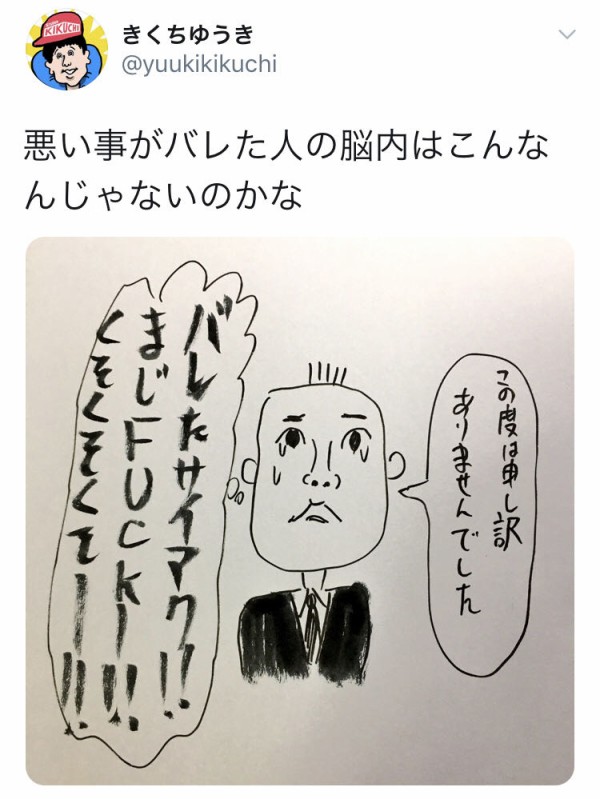 KIKUCHI
きくちゆうき
@yuukikikuchi
悪い事がバレた人の脳内はこんな
んじゃないのかな
この度は申し訳
ありませんでした
バレたサイアク!!
まじFUCKー!!!
くそくそくそくそー!!!